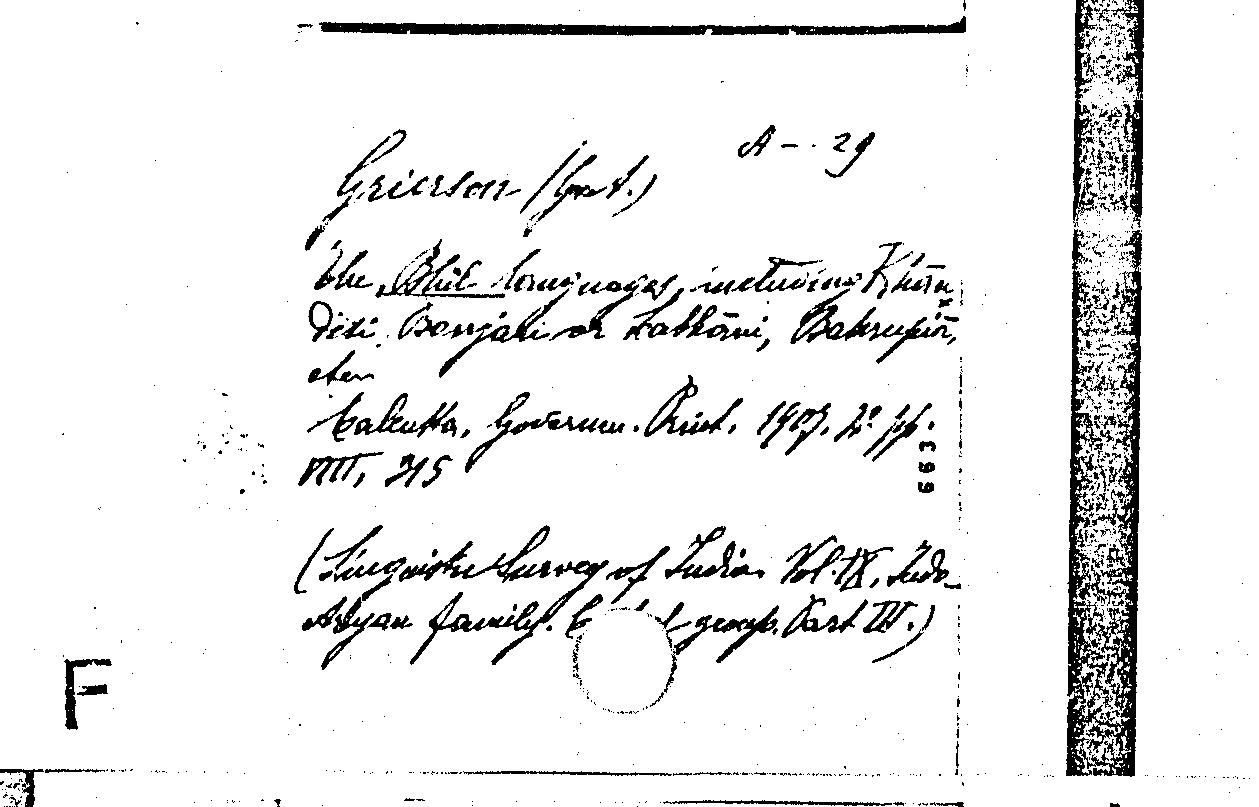 A - 29
Grierson (G. A.)
The Bhil languages, including Khān
deśi, Banjari or Labhāni, Bahrupiā,
etc.
Calcutta, Governm. Print. 1907, 2° pp.
VIII, 315
663
(Linguistic Survey of India. Vol. IX, Indo-
Aryan family. group. Part III.)
F